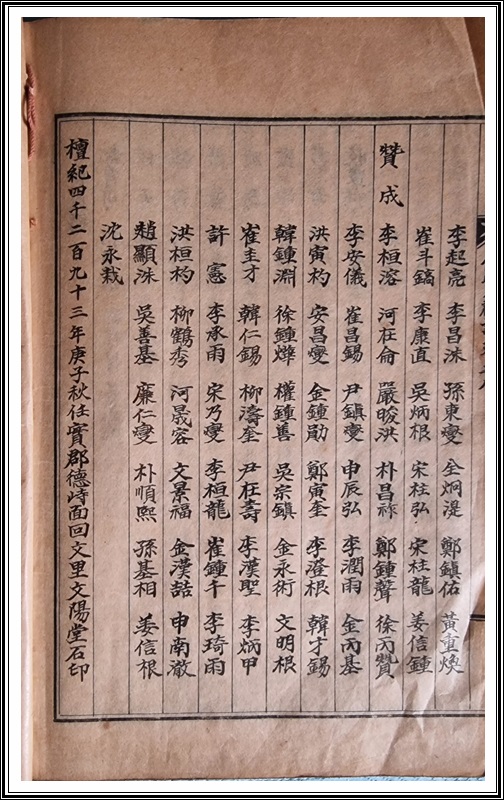 李起亮 李昌洙 孫東燮 全炯湜 鄭鎭佑 黃重煥
崔斗鎬 李康直 吳炳根 宋柱弘 宋柱龍 姜信鍾
贊成 李桓溶 河在侖 嚴晙洪 朴昌祿 鄭鍾聲 徐丙贊
李安儀 崔昌錫 尹鎭燮 申辰弘 李潤雨 金丙基
洪寅杓 安昌燮 金鍾勛 鄭寅奎 李澄根 韓才錫
韓鍾淵 徐鍾燁 權鍾善 吳宗鎭 金永術 文明根
崔圭才 韓仁錫 柳濤奎 尹在壽 李漢聖 李炳甲
許憲 李承雨 宋乃燮 李桓龍 崔鍾千 李琦雨
洪桓杓 柳鶴秀 河晟容 文景福 金漢喆 申南澈
趙顯洙 吳善基 廉仁燮 朴順熙 孫基相 姜信根
沈永栽
檀紀四千二百九十三年庚子秋任實郡德峙面回文里文陽堂石印